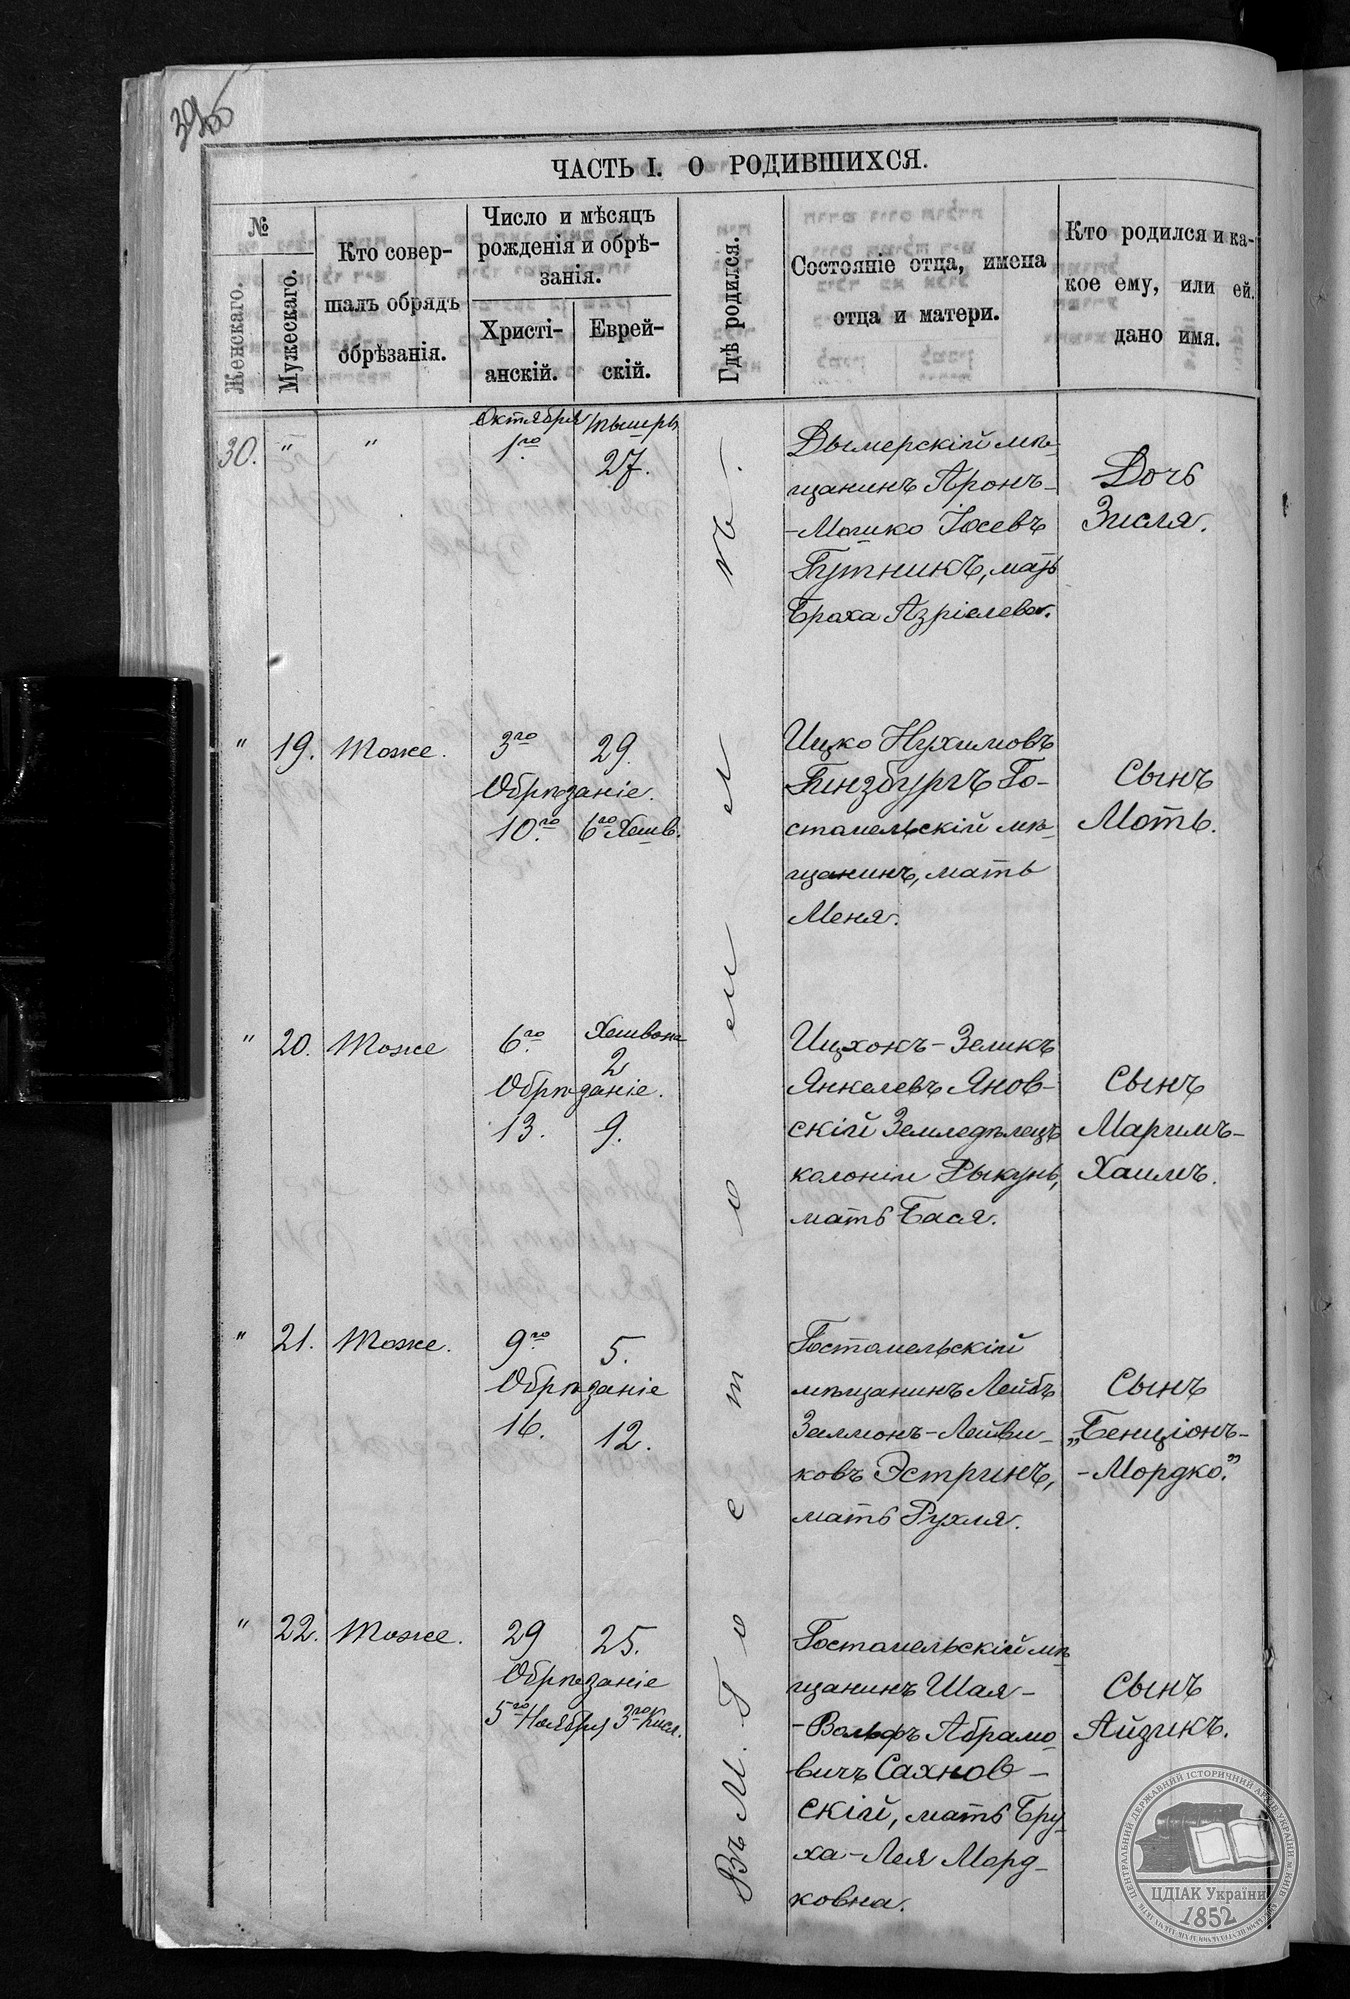 ЧАСТЬ I. О РОДИВШИХСЯ.
№
Женскаго.
Мужескаго.
Кто совер-
шалъ обрядъ
обрѣзанія.
Число и мѣсяцъ
рожденія и обрѣ-
занія.
Христі-
анскій.
Еврей-
скій.
Гдѣ родился.
Состояніе отца, имена
отца и матери.
Кто родился и ка-
кое ему, или ей.
дано имя.
Въ М. Гостомелѣ.
30. " "
Октября
1го
Тышры
27.
Дымерскій мѣ-
щанинъ Аронъ-
-Мошко Іосевъ
Гутникъ, мать
Браха Азріелева.
Дочь
Зисля.
" 19. Тоже. 3го 29.
Обрѣзаніе.
10го 6го Хешв.
Ицко Нухимовъ
Гинзбургъ Го-
стомельскій мѣ-
щанинъ, мать
Меня.
Сынъ
Моть.
" 20. Тоже 6го Хешвона
2
Обрѣзаніе.
13. 9.
Ицхокъ-Зеликъ
Янкелевъ Янов-
скій Земледѣлецъ
колоніи Рыкунь,
мать Бася.
Сынъ
Маримъ-
Хаимъ.
" 21. Тоже. 9го 5.
Обрѣзаніе
16. 12.
Гостомельскій
мѣщанинъ Лейбъ
Залмонъ-Лейви-
ковъ Эстринъ,
мать Рухля.
Сынъ
„Бенціонъ-
-Мордко.”
" 22. Тоже. 29 25.
Обрѣзаніе
5го Ноября 3го Кисл.
Гостомельскій мѣ
щанинъ Шая-
-Вольфъ Абрамо-
вичъ Сахнов-
скій, мать Бру-
ха-Лея Морд-
ковна.
Сынъ
Айзикъ.
ЦЕНТРАЛЬНИЙ ДЕРЖАВНИЙ ІСТОРИЧНИЙ АРХІВ УКРАЇНИ м. КИЇВ
ЦДІАК України
1852